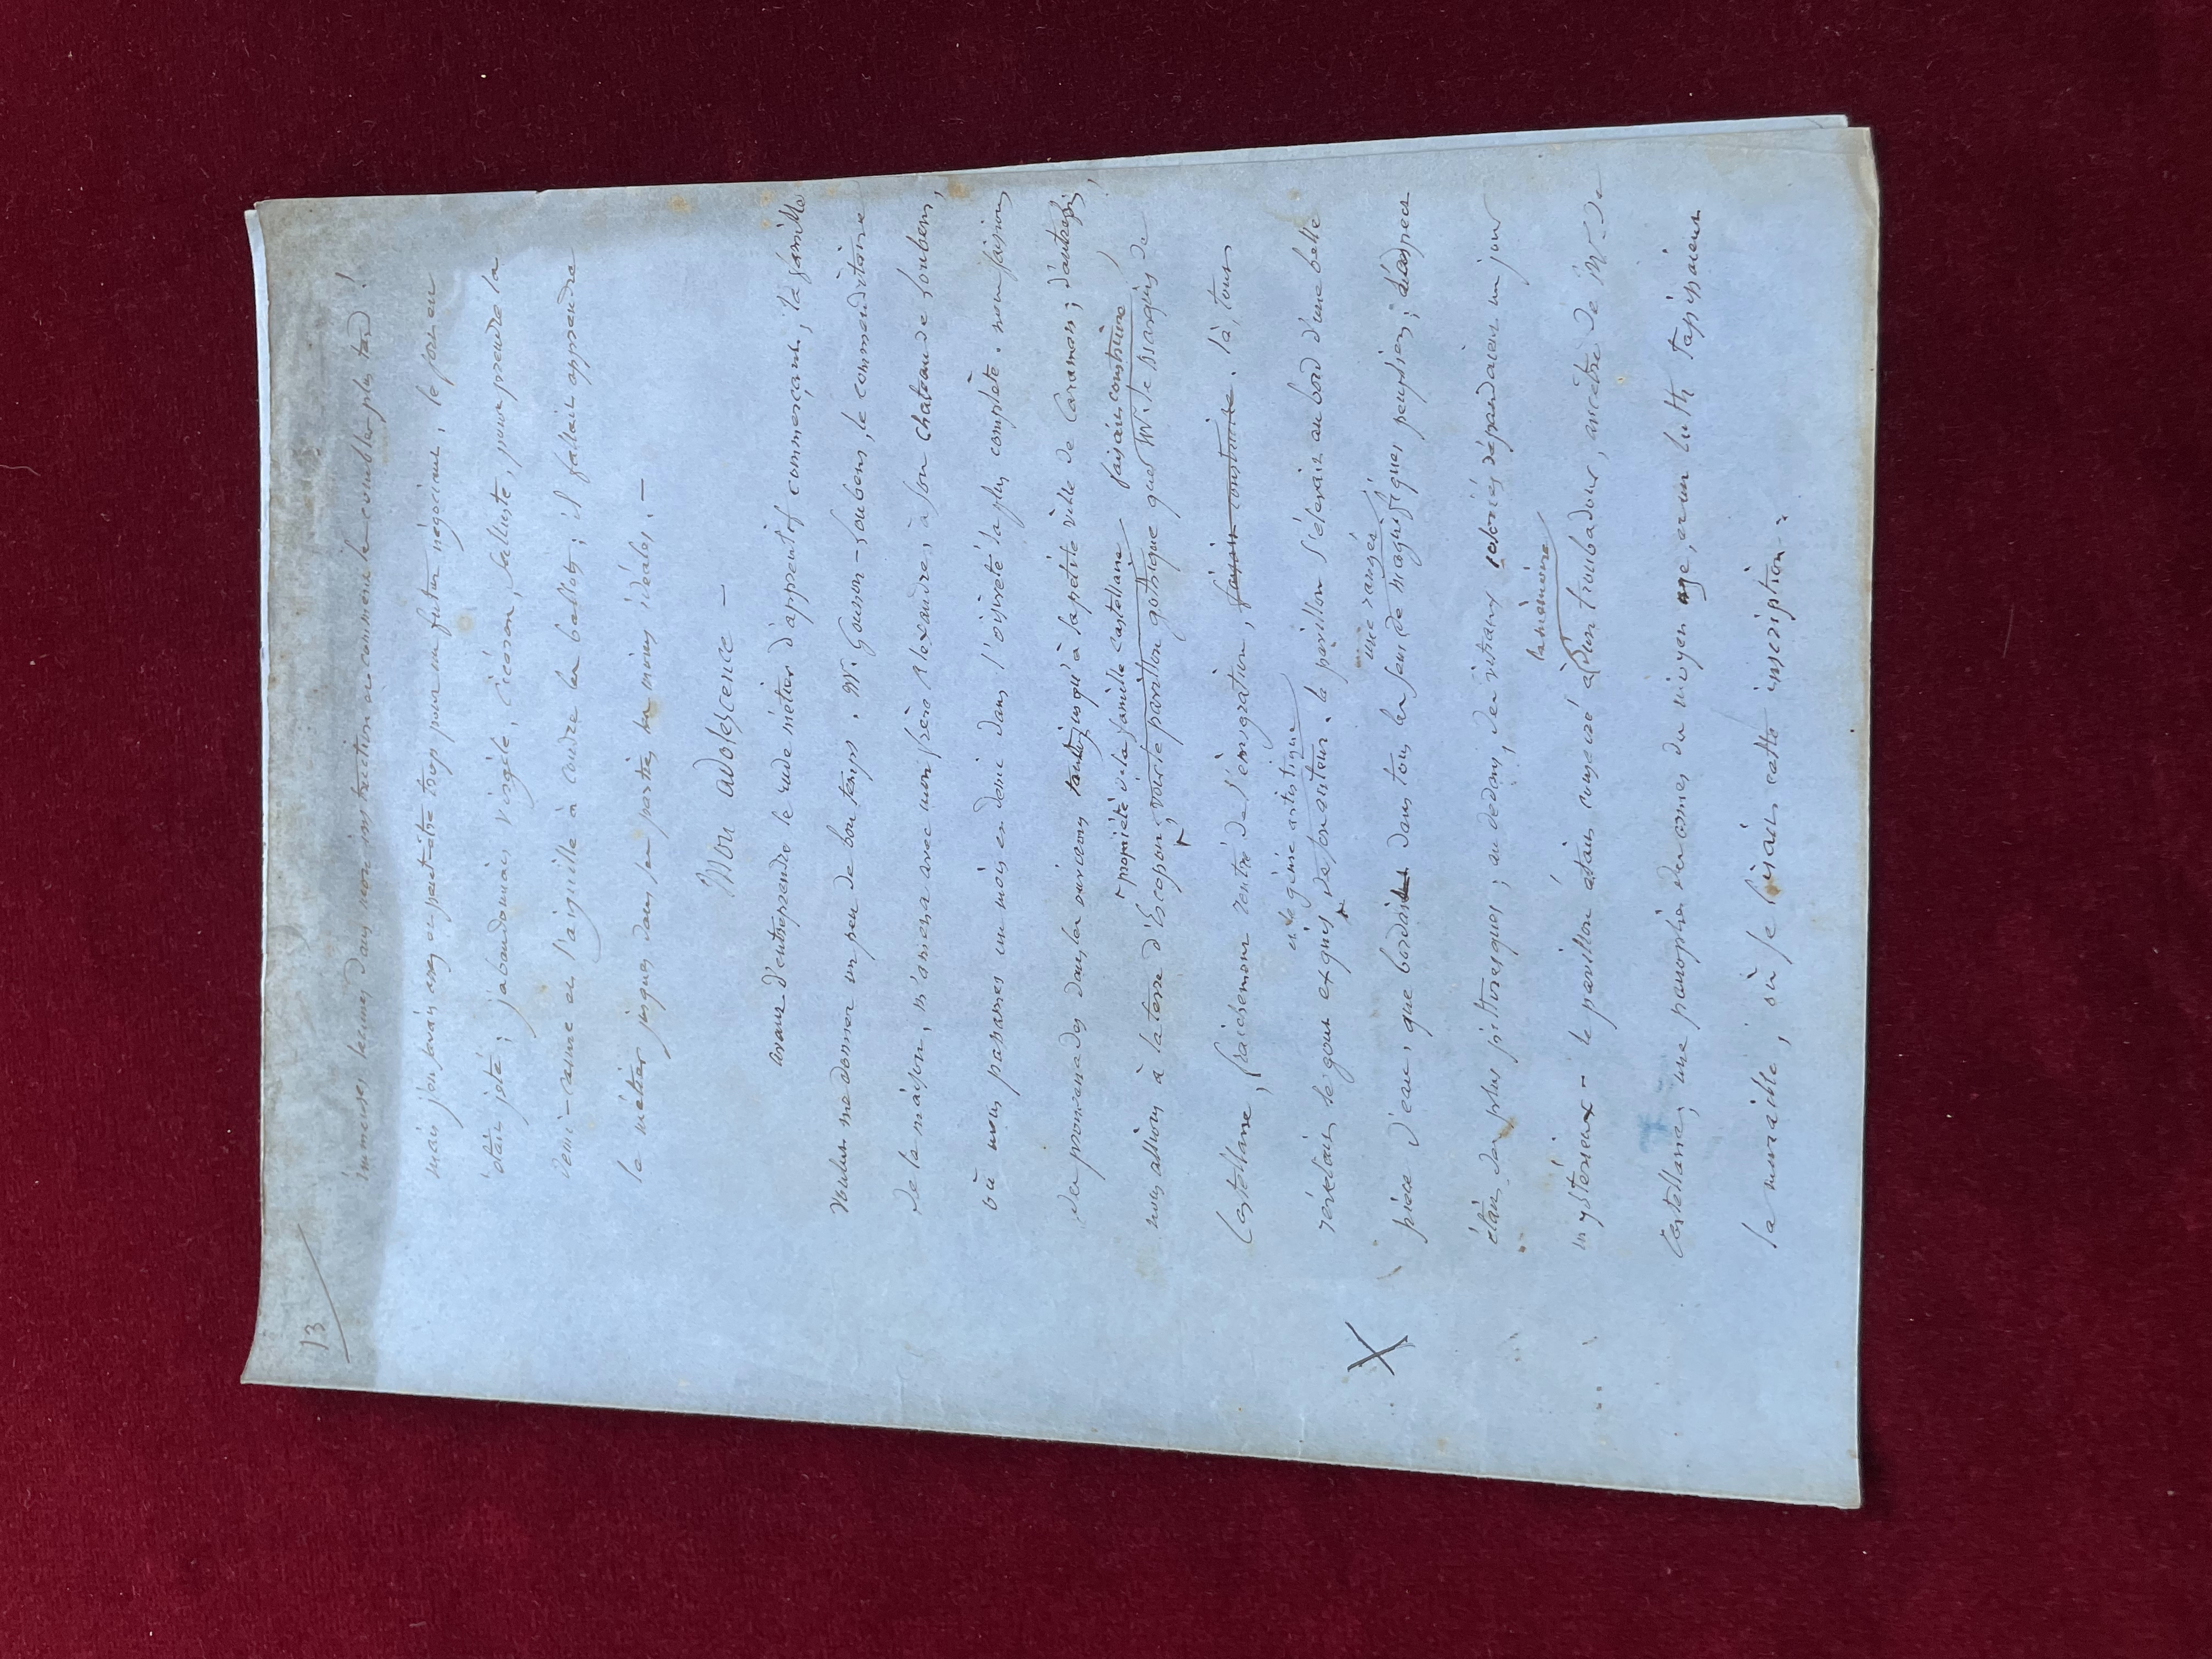 13
immenses lacunes dans mon instruction ai comment les combler plus tard !
mais j'en savais assez ou peut-être trop pour un futur négociant, le sort en
était jeté ; j'abandonnais Virgile, Cicéron, Salluste, pour prendre la
demi-aune et l'aiguille à coudre les ballots ; il fallait apprendre
le métier jusques dans ses parties les moins idéales. —
Mon adolescence —
avant d'entreprendre le rude métier d'apprentif commerçant, la famille
voulut me donner un peu de bon temps. Mr. Gounon-Loubens, le commanditaire
de la maison, m'amena avec mon frère Alexandre, à son Chateau de Loubens,
où nous passames un mois et demi dans l'oisiveté la plus complète. nous faisions
des promenades dans les environs tantôt jusqu'à la petite ville de Caraman ; d'autrefois,
propriété de la famille Castellane
faisait construire
nous allions à la terre d'Escapon, voir le pavillon gothique que Mr. le Marquis de
Castellane, fraichement rentré de l'émigration, faisait construire. là, tout
et le génie artistique
révélait le gout exquis de son auteur. le pavillon s'élevait au bord d'une belle
une rangée
pièce d'eau, que bordait dans tous les sens de magnifiques peupliers ;
était des plus pittoresques ; au dedans, des vitraux coloriés répandaient un jour
la mémoire
mystérieux - le pavillon était consacré à d'un troubadour, ancêtre de Mr. de
Castellane ; une panoplie des armes du moyen age, et un luth tapissaient
la muraille, où se lisait cette inscription :
X